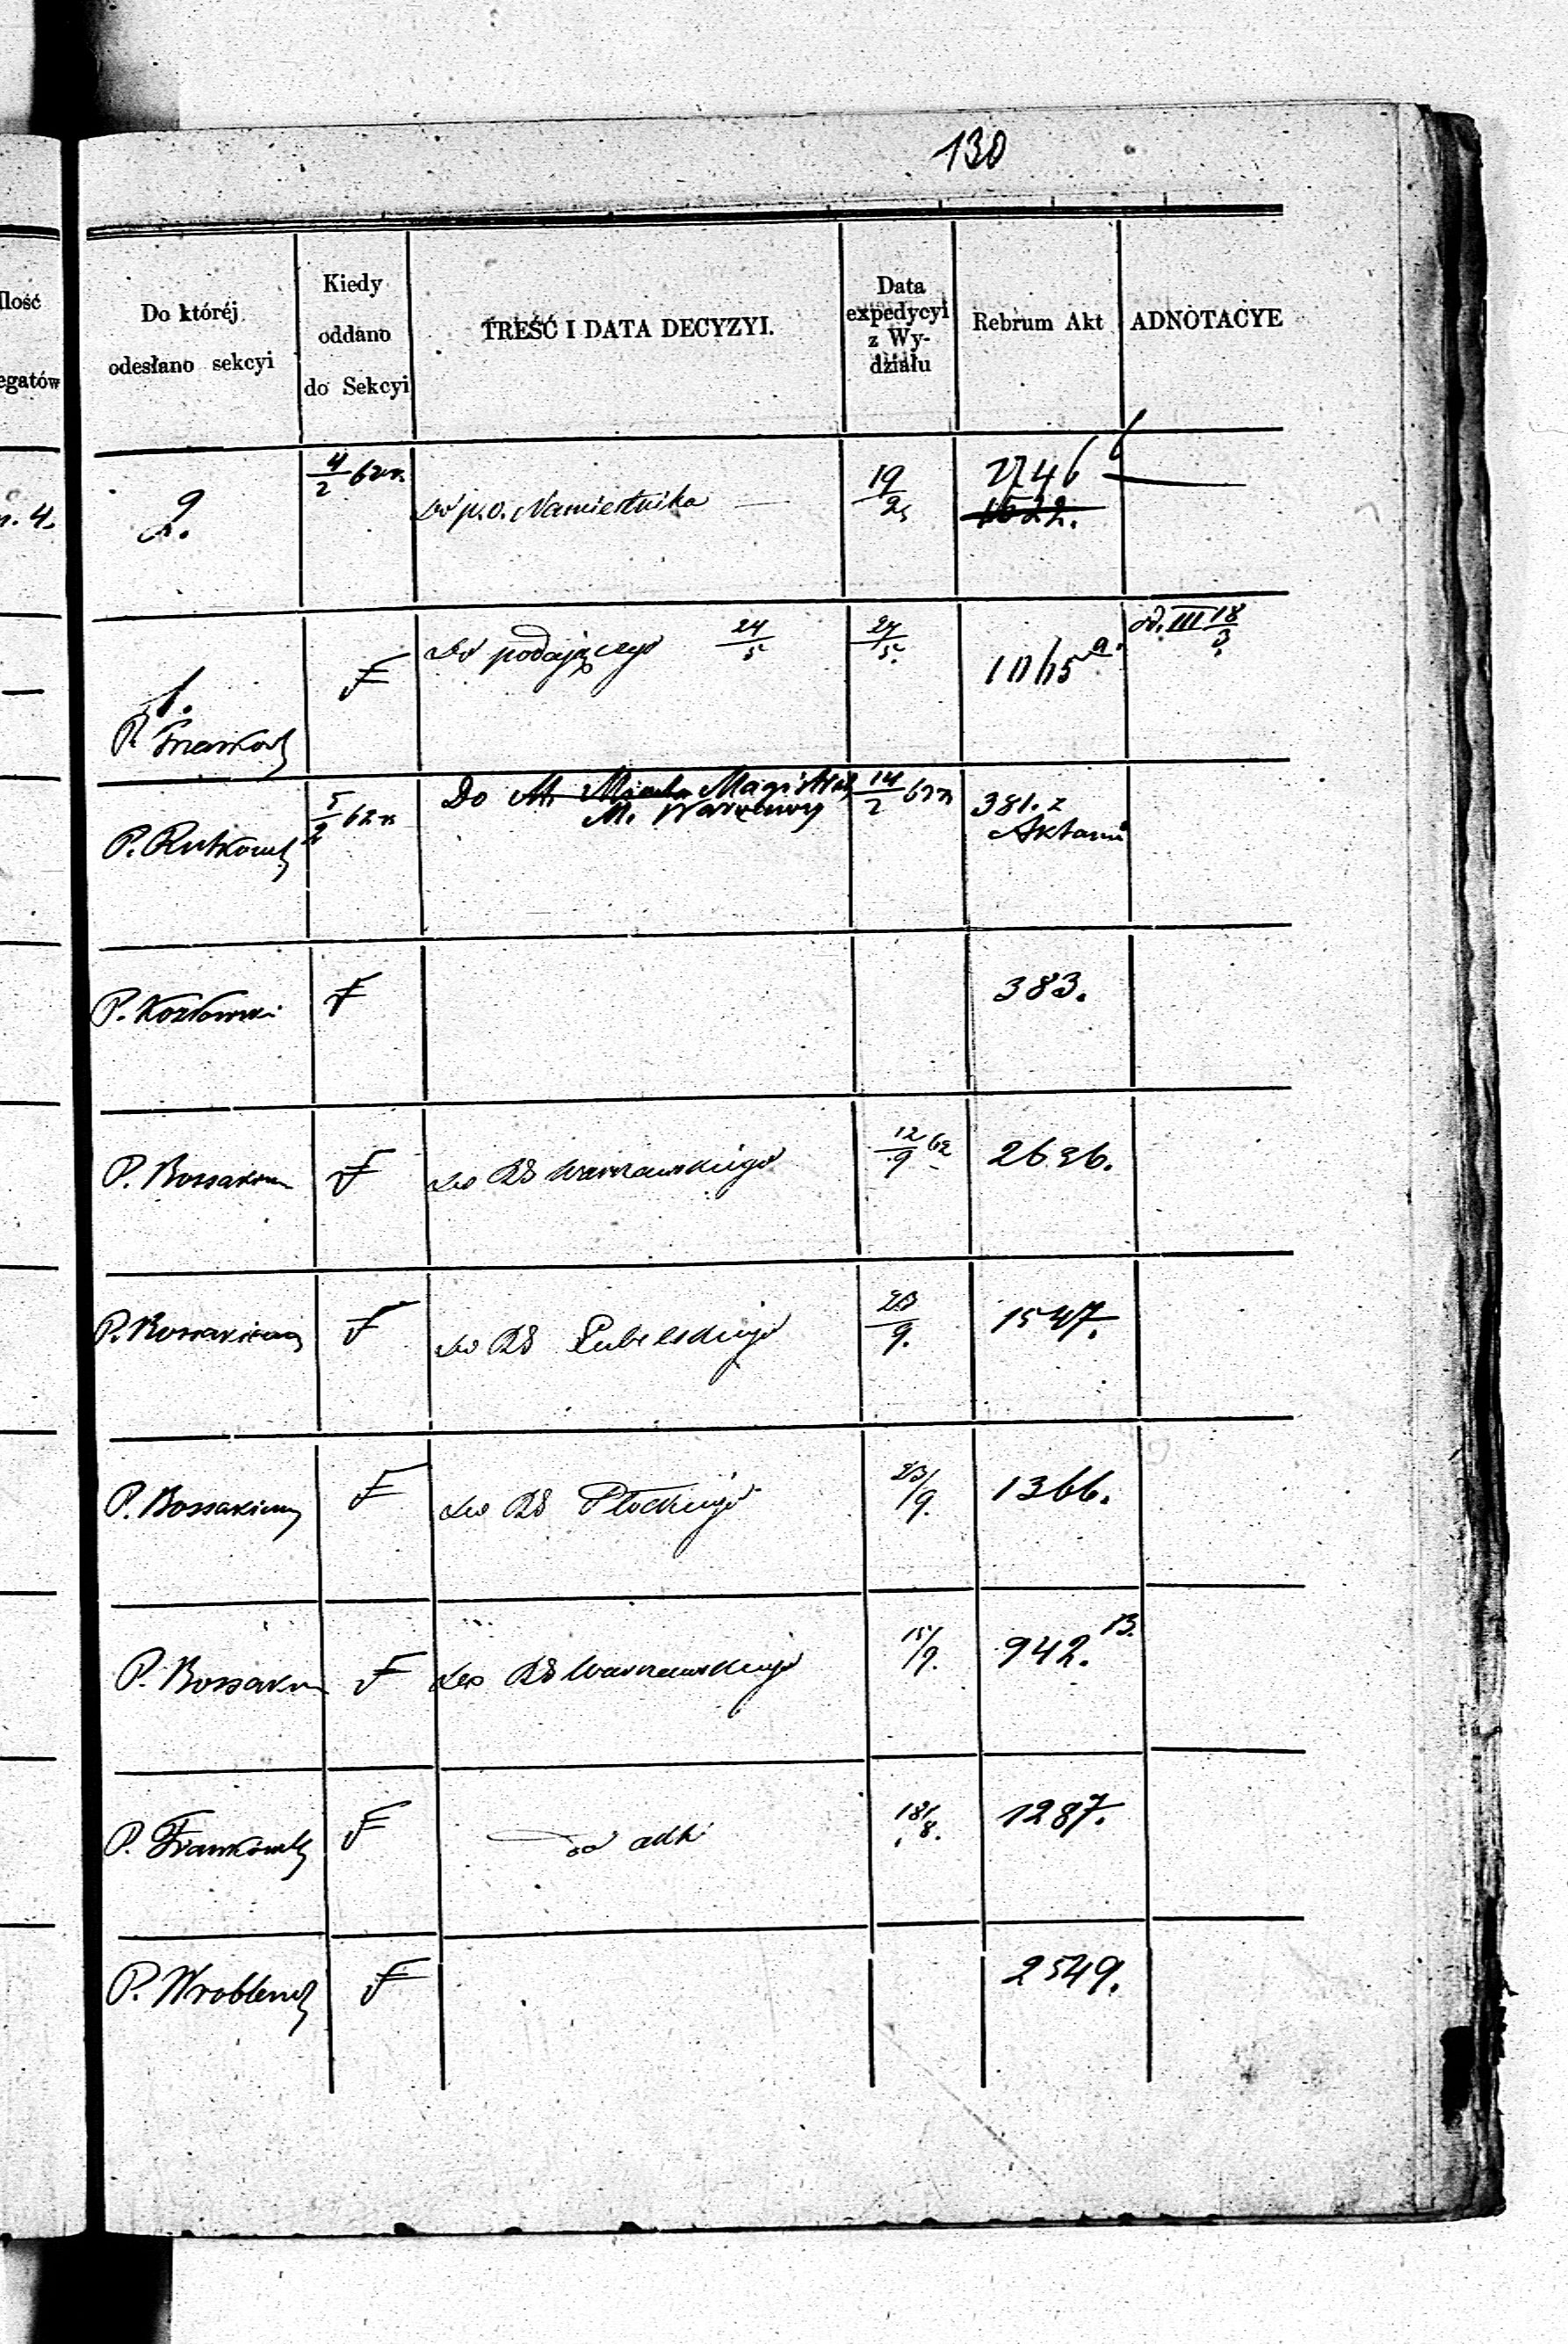 130
Ilość
egatów
Do któréj
odesłano sekcyi
Kiedy
oddano
do Sekcyi
TREŚĆ I DATA DECYZYI.
Data
expedycyi
z Wy-
działu
Rebrum Akt
ADNOTACYE
4.
2.
4/2 62 r.
Do p.o. Namiestnika
19/2
2746
1522.
1.
F
Do podającego 24/5
24/5.
1065 a.
od. III 18/3
P. Rutkowsk
5/2 62 r
Do M. Miasta Magistrat
M. Warszawy
14/2 62 r
381. z
Aktami
P. Kozłowski
F
383.
P. Bossakiew
F
do RG Warszawskiego
12/9 62
2636.
P. Bossakiewicz
F
do RG Lubelskiego
23/9.
1547.
P. Bossakiewicz
F
do RG Płockiego
23/9.
1366.
P. Bossakiew
F
do RG Warszawskiego
15/9.
942. B.
P. Frankowsk
F
do adk
18/8.
1287.
P. Wroblewsk
F
2549.